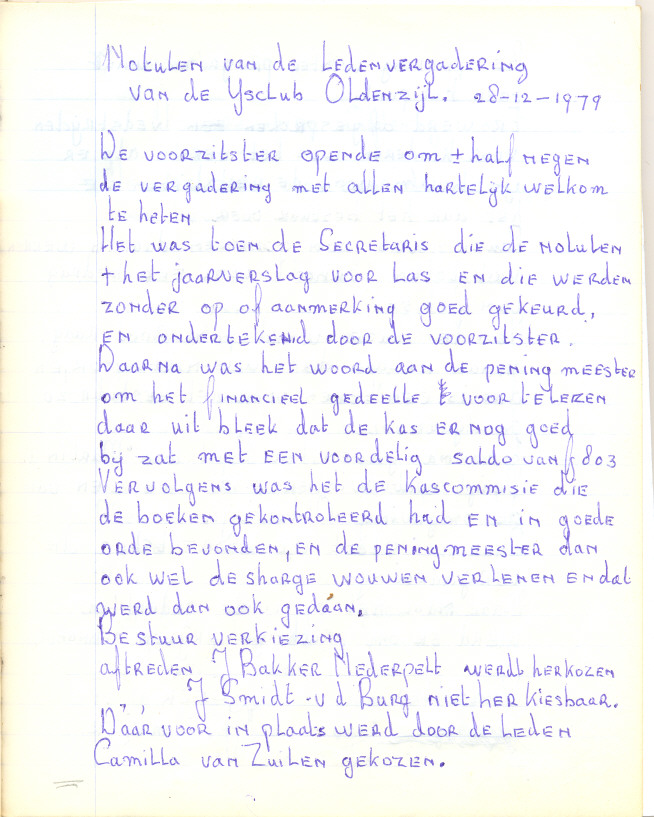 Notulen van de Ledenvergadering
van de Ysclub Oldenzijl. 28-12-1979
De voorzitster opende om ± half negen
de vergadering met allen hartelijk welkom
te heten
Het was toen de Secretaris die de notulen
+ het jaarverslag voor las en die werden
zonder op of aanmerking goed gekeurd,
en ondertekend door de voorzitster.
Daarna was het woord aan de pening meester
om het financieel gedeelte voor te lezen
daar uit bleek dat de kas er nog goed
bij zat met een voordelig saldo van f 803
Vervolgens was het de Kascommisie die
de boeken gekontroleerd had en in goede
orde bevonden, en de peningmeester dan
ook wel desharge wouwen verlenen en dat
werd dan ook gedaan.
Bestuur verkiezing
aftreden J Bakker Mederpelt werdt herkozen
" " J Smidt - v d Burg niet herkiesbaar.
Daar voor in plaats werd door de leden
Camilla van Zuilen gekozen.